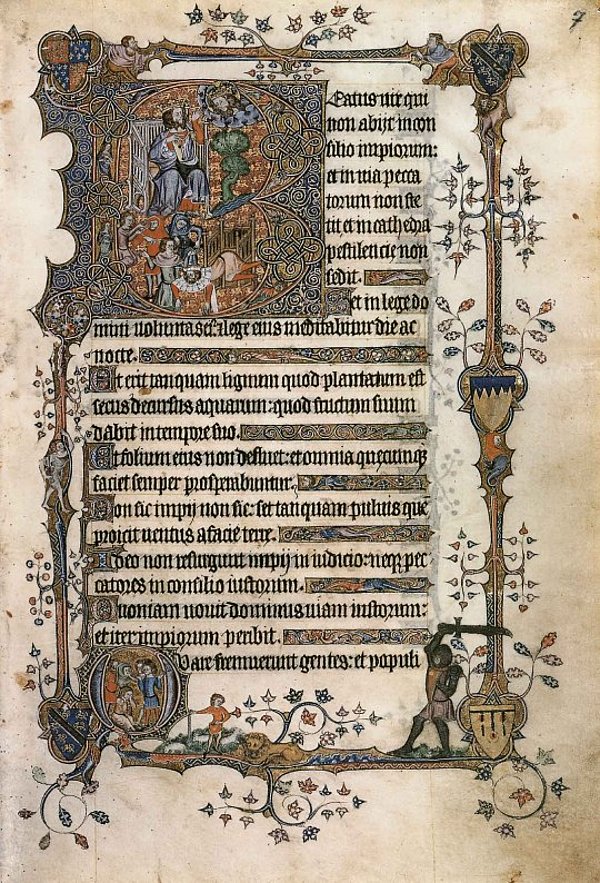 7
Beatus uir qui
non abijt in con
silio impiorum:
et in uia pecca
torum non ste
tit et in cathedra
pestilencie non
sedit.
Set in lege do
mini uoluntas ei: ⁊ lege eius meditabitur die ac
nocte.
Et erit tanquam lignum quod plantatum est
secus decursus aquarum: quod fructum suum
dabit in tempre suo.
Et folium eius non defluet: et omnia quecunq;
faciet semper prosperabuntur.
Non sic impij non sic: set tanquam puluis quē
proicit uentus a facie terre.
Ideo non resurgunt impij in iudicio: neq; pec
catores in consilio iustorum.
Quoniam nouit dominus uiam iustorum:
et iter impiorum peribit.
Quare fremuerunt gentes: et populi